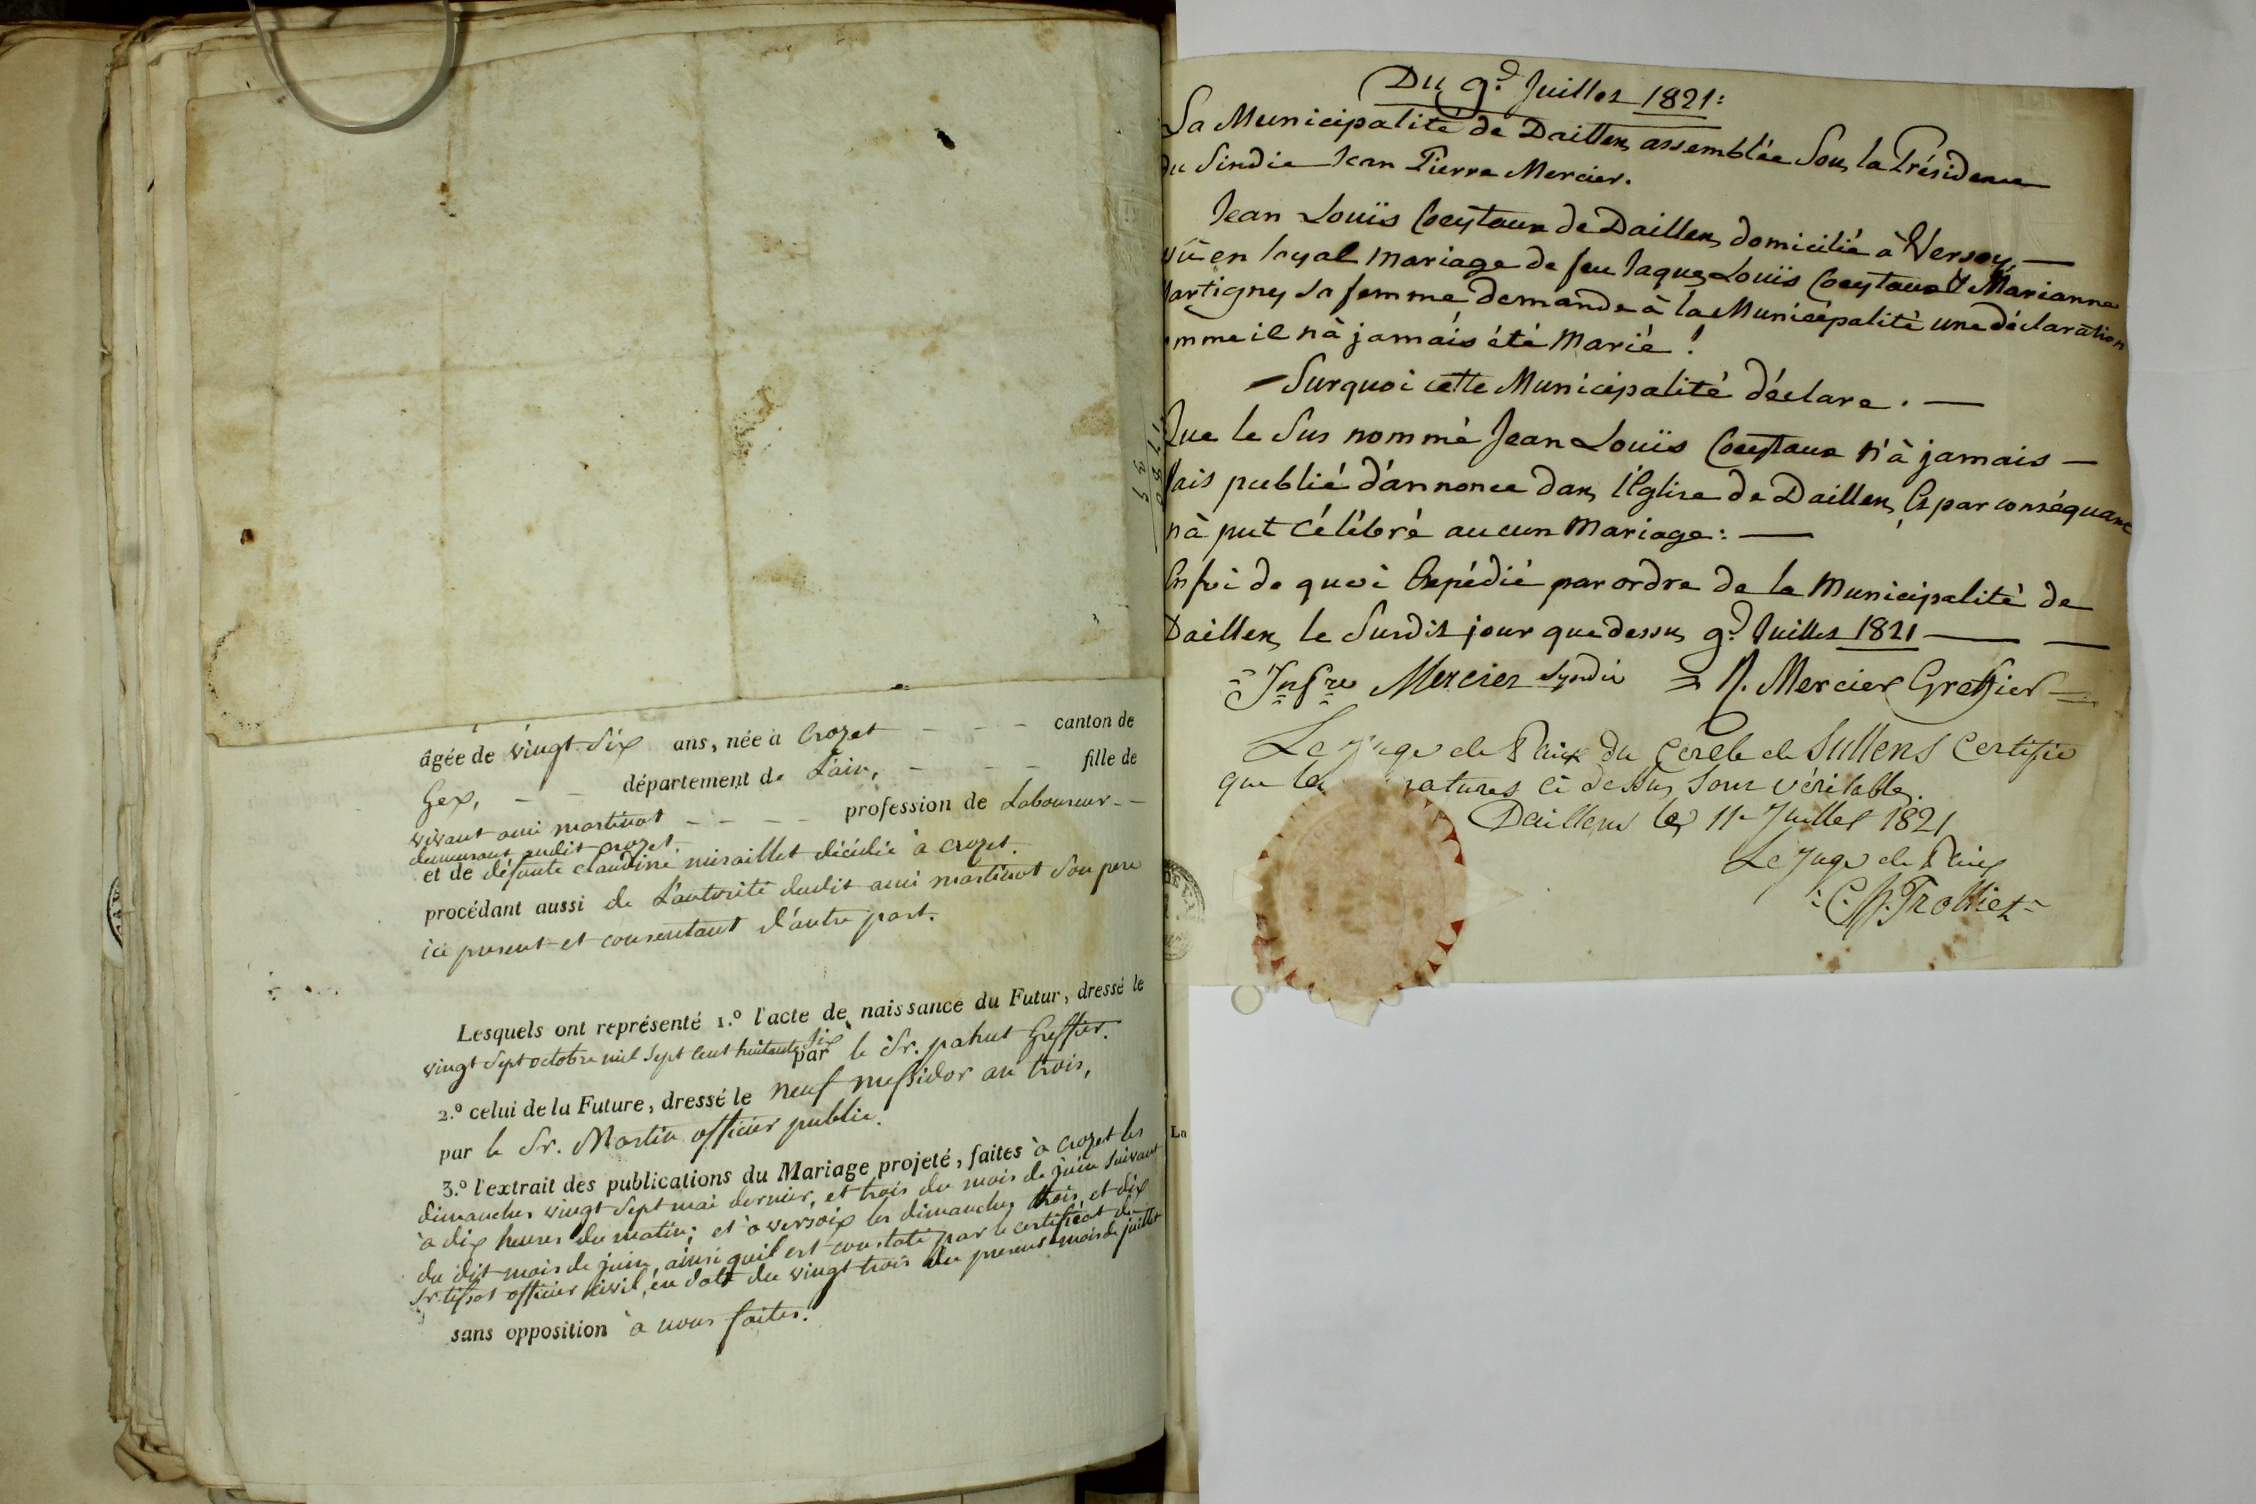 âgée de vingt six ans, née à Crozet canton de
Gex, département de L'ain, fille de
vivant ami martinot profession de Laboureur
demeurant audit crozet.
et de défunte claudine miraillet décédée à crozet.
procédant aussi de L'autorité dudit ami martinot son pere
ici present et consentant d'autre part.
Lesquels ont représenté 1.º l'acte de naissance du Futur, dressé le
vingt sept octobre mil sept cent huitante six par le Sr. pahut Greffier.
2.º celui de la Future, dressé le neuf messidor an trois,
par le Sr. Martin officier public.
3.º l'extrait des publications du Mariage projeté, faites à crozet les
dimanches vingt sept mai dernier, et trois du mois de juin suivant
à dix heures du matin; et à versoix les dimanches trois et dix
du dit mois de juin, ainsi qu'il est constaté par le certificat du
Sr. tissot officier civil, en date du vingt trois du present mois de juillet
sans opposition à nous faites.
Du 9.d Juillet 1821:
La Municipalité de Daillens assemblée Sous la Présidence
du Sindic Jean Pierre Mercier.
Jean Louïs Coeytaux de Daillens, domicilié à Versoy
en loyal mariage de feu Jaques Louïs Coeytaux & Marianne
Martigny sa femme demande à la Municipalité une déclaration
omme il n'à jamais été Marié!
Surquoi cette Municipalité déclare.
Que le Sus nommé Jean Louïs Coeytaux n'à jamais
fais publié d'annonce dans l'Eglise de Daillens, Et par conséquant
n'à put Célébré aucun Mariage:
En foi de quoi Expédié par ordre de la Municipalité de
Daillens le Surdit jour que dessus 9.d Juillet 1821
Mercier Syndic Mercier Greffier
Le Juge de Paix du Cercle de Sullens Certifie
que les natures ci dessus sont véritables.
Daillens le 11 Juillet 1821
Le Juge de Paix
Trolliet
La